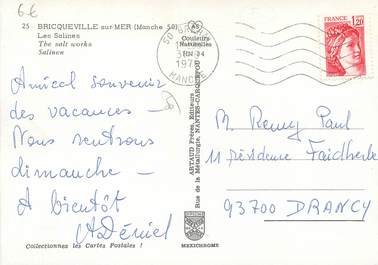 6€
25 - BRICQUEVILLE sur-MER (Manche 50)
Les Salines
The salt works
Salinen
AS
Couleurs
Naturelles
FRANCE
1,20
MANCHE
Amical souvenir
des vacances -
Nous rentrons
dimanche -
A bientôt
ARTAUD Frères, Editeurs
Rue de la Métallurgie, NANTES-CARQUEFOU
M. Remy Paul
11 résidence Faidherbe
93700 DRANCY
Collectionnez les Cartes Postales !
MEXICHROME